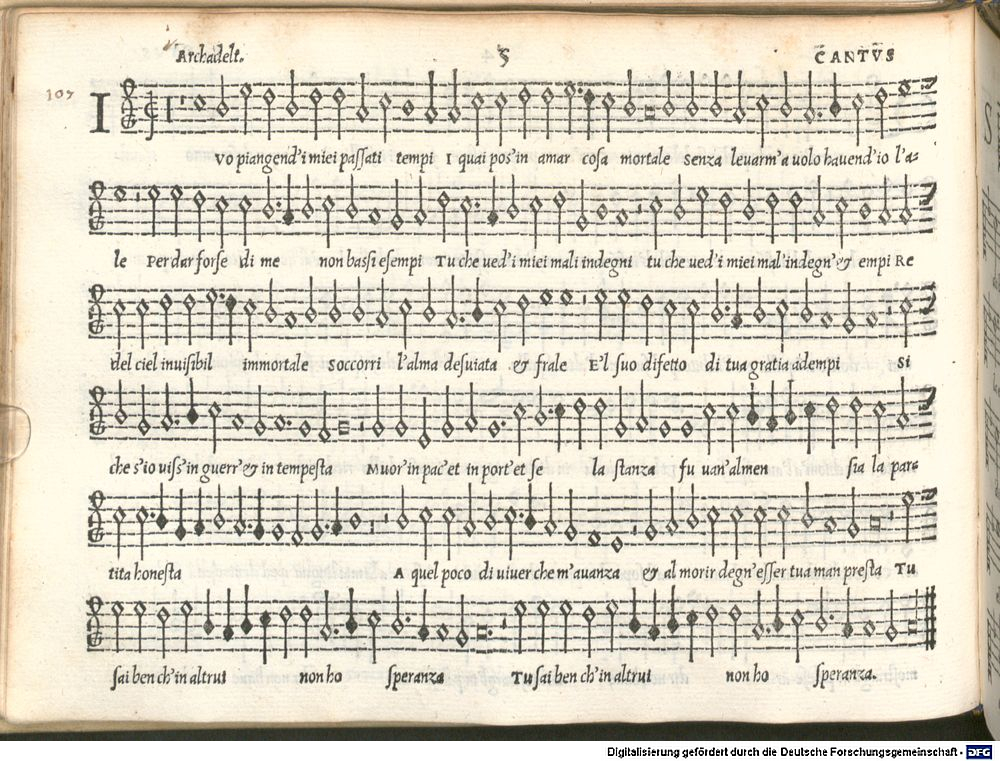 Archadelt. 5 CANTVS
107
I
vo piangend'i miei passati tempi I quai pos'in amar cosa mortale Senza leuarm'a uolo hauend'io l'a-
le Per dar forse di me non bassi esempi Tu che ued'i miei mali indegni tu che ued'i miei mal'indegn'& empi Re
del ciel inuisibil immortale Soccorri l'alma desuiata & frale E'l suo difetto di tua gratia adempi Si
che s'io uiss'in guerr'& in tempesta Muor'in pac'et in port'et se la stanza fu uan'almen sia la par-
tita honesta A quel poco di uiuer che m'auanza & al morir degn'esser tua man presta Tu
sai ben ch'in altrui non ho speranza Tu sai ben ch'in altrui non ho speranza.
Digitalisierung gefördert durch die Deutsche Forschungsgemeinschaft - DFG